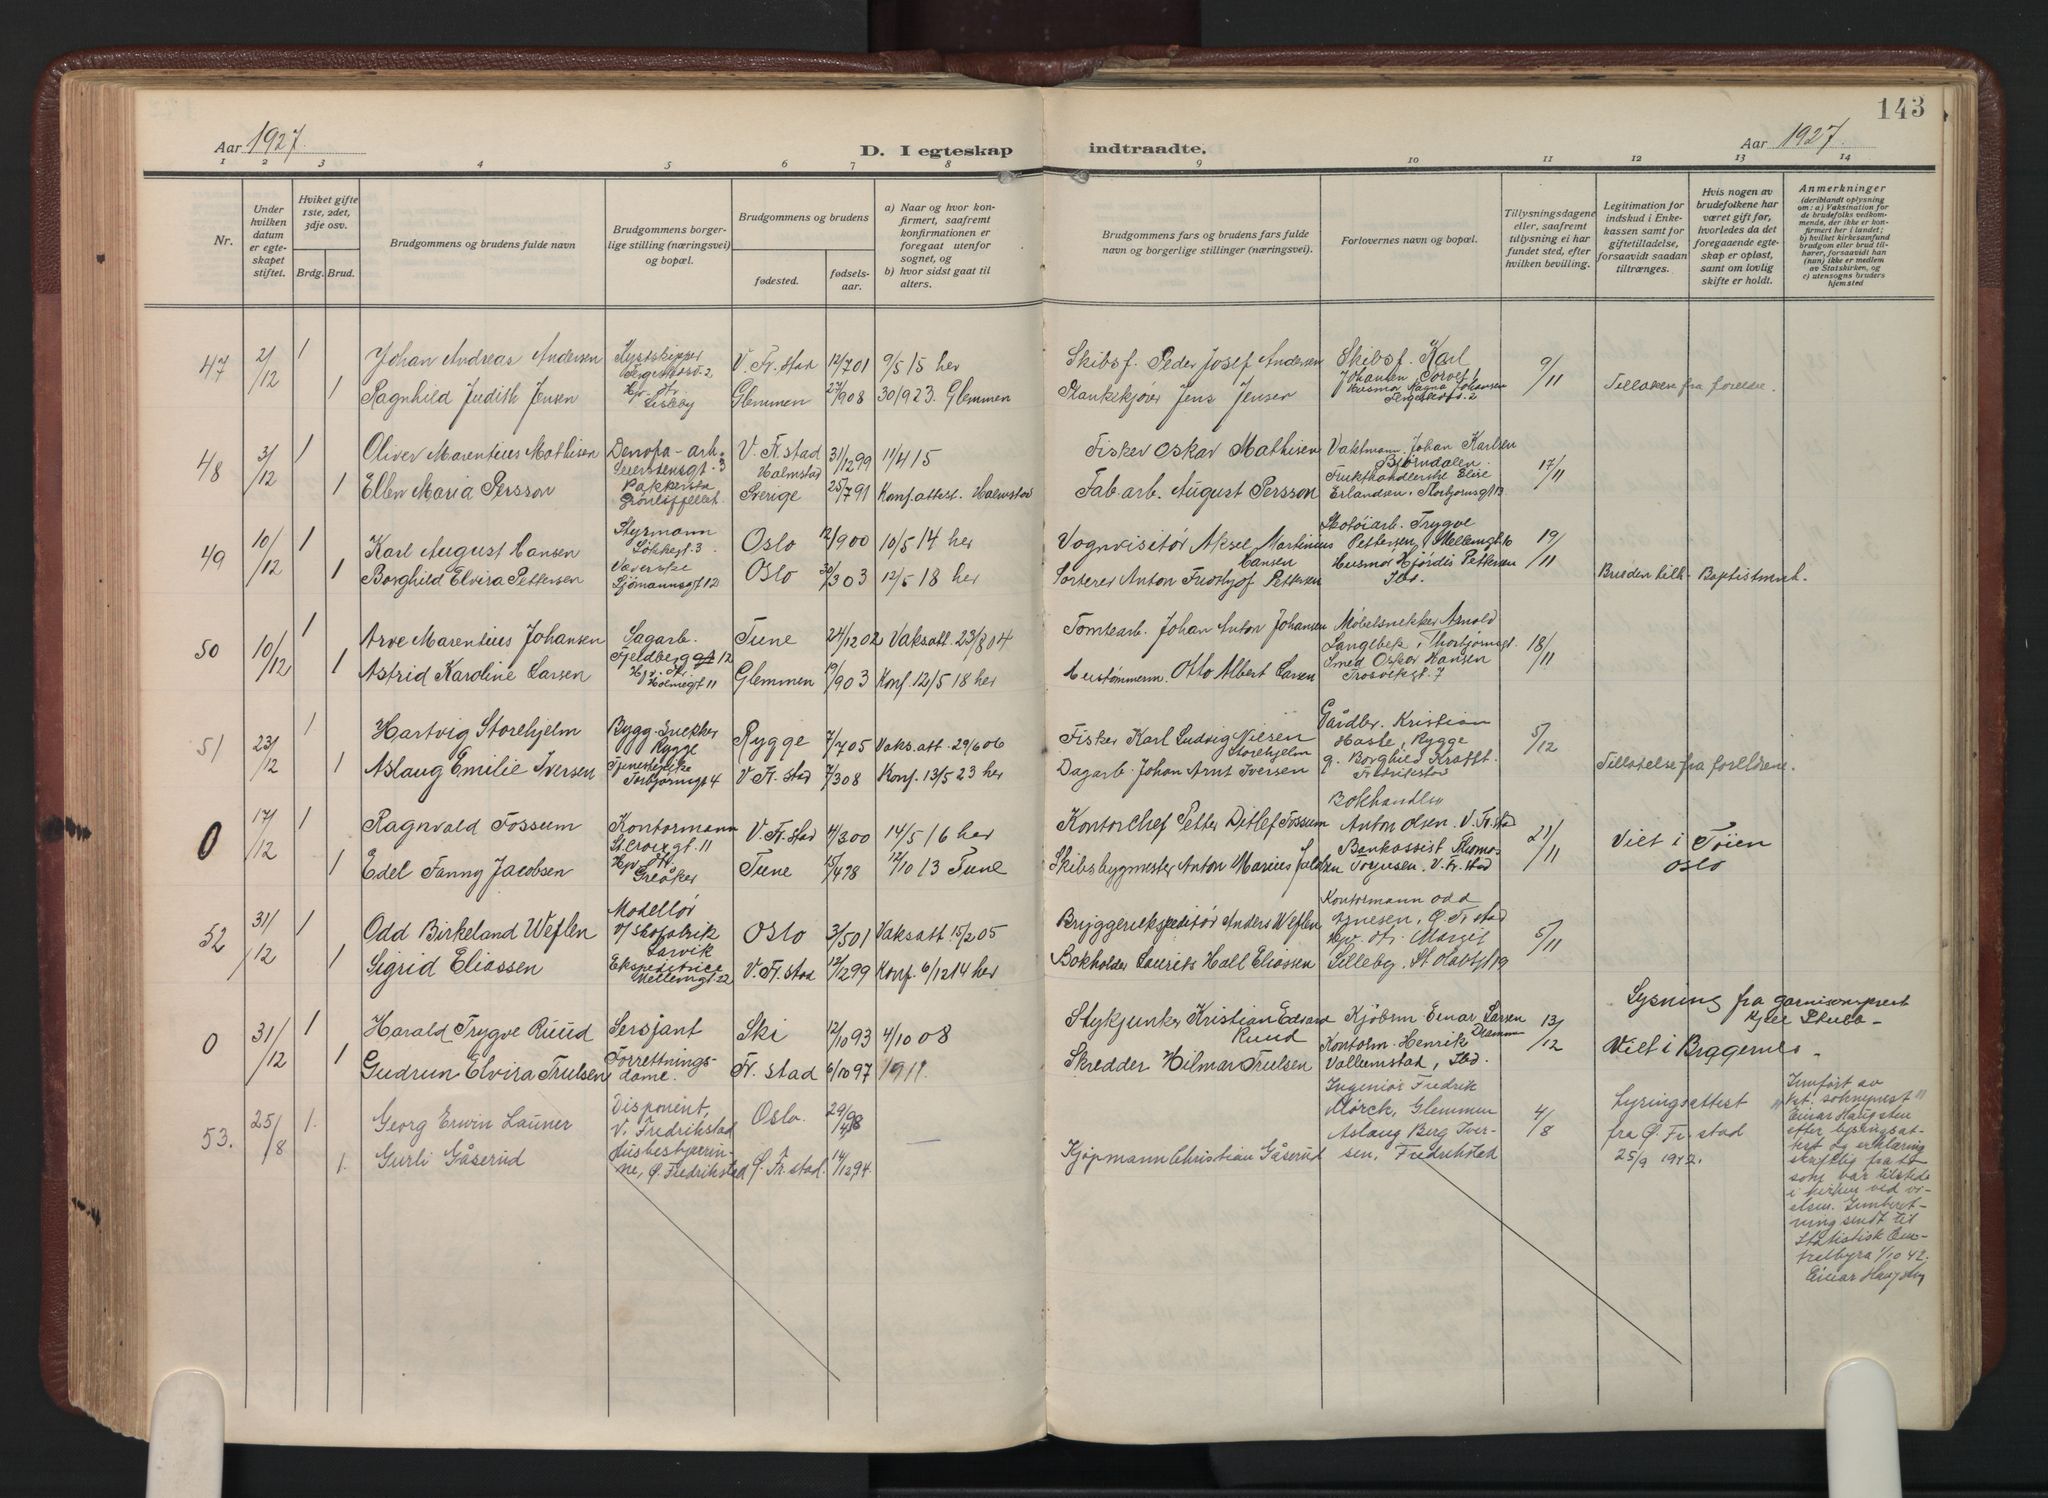 143
Aar 1927.
D. I egteskap indtraadte.
Aar 1927.
1 2 3 4 5 6 7 8 9 10 11 12 13 14
Nr.
Under hvilken datum er egteskapet stiftet.
Hviket gifte 1ste, 2det, 3dje osv.
Brdg. Brud.
Brudgommens og brudens fulde navn
Brudgommens borgerlige stilling (næringsvei) og bopæl.
Brudgommens og brudens
fødested.
fødselsaar.
a) Naar og hvor konfirmert, saafremt konfirmationen er foregaat utenfor sognet, og
b) hvor sidst gaat til alters.
Brudgommens fars og brudens fars fulde navn og borgerlige stillinger (næringsvei).
Forlovernes navn og bopæl.
Tillysningsdagene eller, saafremt tillysning ei har fundet sted, efter hvilken bevilling.
Legitimation for indskud i Enkekassen samt for giftetilladelse, forsaavidt saadan tiltrænges.
Hvis nogen av brudefolkene har været gift før, hvorledes da det foregaaende egteskap er opløst, samt om lovlig skifte er holdt.
Anmerkninger
(deriblandt oplysning om: a) Vaksination for de brudefolks vedkommende, der ikke er konfirmert her i landet;
b) hvilket kirkesamfund brudgom eller brud tilhører, forsaavidt han (hun) ikke er medlem av Statskirken, og
c) utensogns bruders hjemsted
47 2/12 1 Johan Andreas Andersen Kystskipper V. Fr.stad 12/7 01 9/5 15 her Skibsf. Peder Josef Andersen Skibsf. Karl Johansen 9/11
1 Ragnhild Judith Jensen Hjv. dtr. Lisleby Glemmen 27/9 08 30/9 23. Glemmen Plankekjører Jens Jensen Husmor Ragna Johansen Tillatelse fra foreldre.
48 3/12 1 Oliver Marentius Mathisen Denofa-arb. Sorensensgt. 3 V. Fr.stad 31/12 99 11/4 15 Fisker Oskar Mathisen Vaktmann Johan Karlsen Bjørndalen 17/11
1 Ellen Maria Persson Pakkerske Halmstad Sverige 25/7 91 Konf.attest. Halmstad Fab.arb. August Persson Frukthandlerske Elise Erlandsen, Thorbjørnsgt 13
49 10/12 1 Karl August Hansen Styrmann Løkkegt. 3 Oslo 12/9 00 10/5 14 her Vognvisitør Aksel Martinius Hansen Skotøiarb. Trygve Pettersen, Mellemgt 10 19/11
1 Borghild Elvira Pettersen Væverske Sjømannsgt 12 Oslo 30/3 03 12/5 18 her Sorterer Anton Fridtjof Pettersen Husmor Hjørdis Pettersen Ibd. Bruden tilh. Baptistmenh.
50 10/12 1 Arve Marentius Johansen Sagarb. Fjeldberggt 12 Tune 24/12 02 Vaksatt. 23/8 04 Tomtearb. Johan Anton Johansen Møbelsnekker Arnold Langlbek, Thorbjørnsgt. 18/11
1 Astrid Karoline Larsen Hjv. dtr. Holmegt 11 Glemmen 19/9 03 Konf. 12/5 18 her Hustømmerm. Otto Albert Larsen Smed Oskar Hansen Trosvikgt. 7
51 23/12 1 Hartvig Storehjelm Bygg-Snekker Rygge Rygge 7/7 05 Vaks.att. 29/6 06 Fisker Karl Ludvig Nilsen Storehjelm Gårdbr. Kristian Haste, Rygge 5/12
1 Aslaug Emilie Iversen Tjenestepike Torbjørnsgt 4 V. Fr. stad 7/3 08 Konf. 13/5 23 her Dagarb. Johan Arnt Iversen g. Borghild Krafft. Fredrikstad Tillatelse fra foreldrene.
0 17/12 1 Ragnvald Fossum Kontormann St.Croixgt. 11 V. Fr.stad 4/3 00 14/5 16 her Kontorchef Petter Ditlef Fossum Bokhandler Anton Olsen. V. Fr.stad 21/11 Viet i Tøien
1 Edel Fanny Jacobsen Hjv. dtr. Greåker Tune 15/4 98 12/10 13 Tune Skibsbygmester Anton Marius Jacobsen Bankassist Thomas Torjusen. V. Fr. stad Oslo
52 31/12 1 Odd Birkeland Weflen Modellør v/ Skofabrik Larvik Oslo 3/5 01 Vaksatt 15/2 05 Bryggeriekspeditør Anders Weflen Kontormann Odd Ø. Fr. stad 5/11
1 Sigrid Eliassen Ekspeditrice Mellemgt. 22 V. Fr. stad 12/2 99 Konf. 6/12 14 her Bokholder Laurits Hall Eliassen Hjv. dtr. Margit Lilleby, St. Olavsgt 19
0 31/12 1 Harald Trygve Ruud Sersjant Ski 12/10 93 4/10 08 Stykjunker Kristian Edvard Ruud Kjøbm. Einar Larsen Dramm 13/12 Lysning fra garnisonsprest Kjell
1 Gudrun Elvira Trulsen Forretningsdame. Fr. stad 6/10 97 1911. Skredder Hilmar Trulsen Kontorm. Henrik Vallemstad, Ibd. Viet i Bragernes.
53. 25/8 1. Georg Erwin Launer Disponent, V. Fredrikstad Oslo. 29/4 98 — Ingeniør Fredrik Mørck, Glemmen 4/8 Lysingsattest fra Ø. Fr. stad 25/9 1942.
1. Gurli Gåserud Husbestyrerinne, Ø. Fredrikstad Ø. Fr. stad. 14/12 94. Kjøpmann Christian Gåserud Aslaug Berg Iversen, Fredrikstad
Innført av kst. sokneprest Einar Haugsten efter lysingsattest og erklæring skriftlig fra to som var tilstede i kirken ved vielsen. Innberetning sendt til Statistisk Sentralbyra 1/10 42.
Einar Haugsten